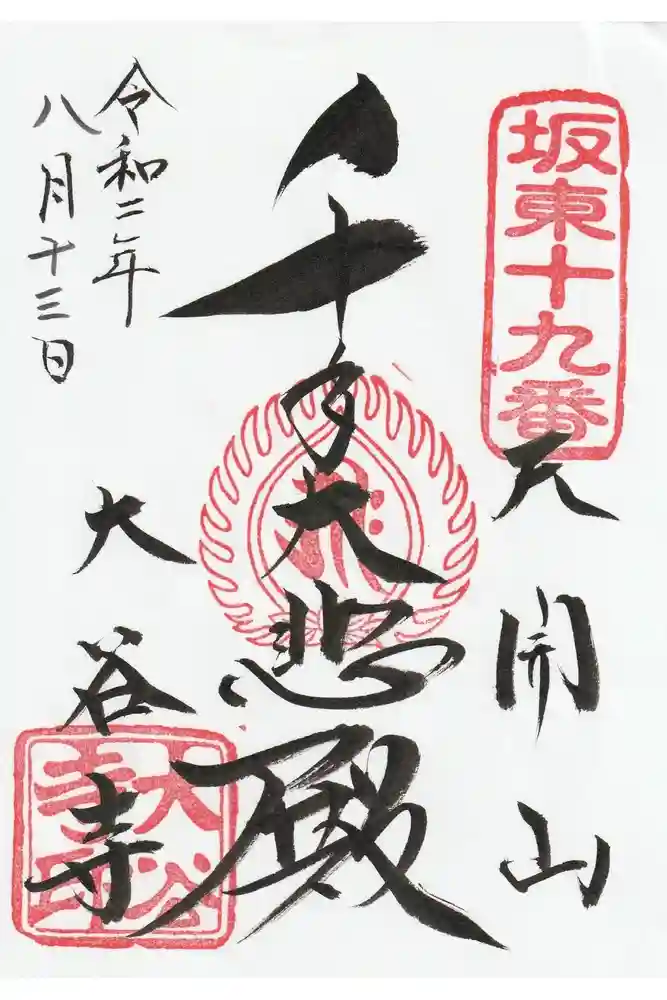 坂東十九番
天開山
千手大悲殿
令和二年
八月十三日
大谷寺
大谷
寺印